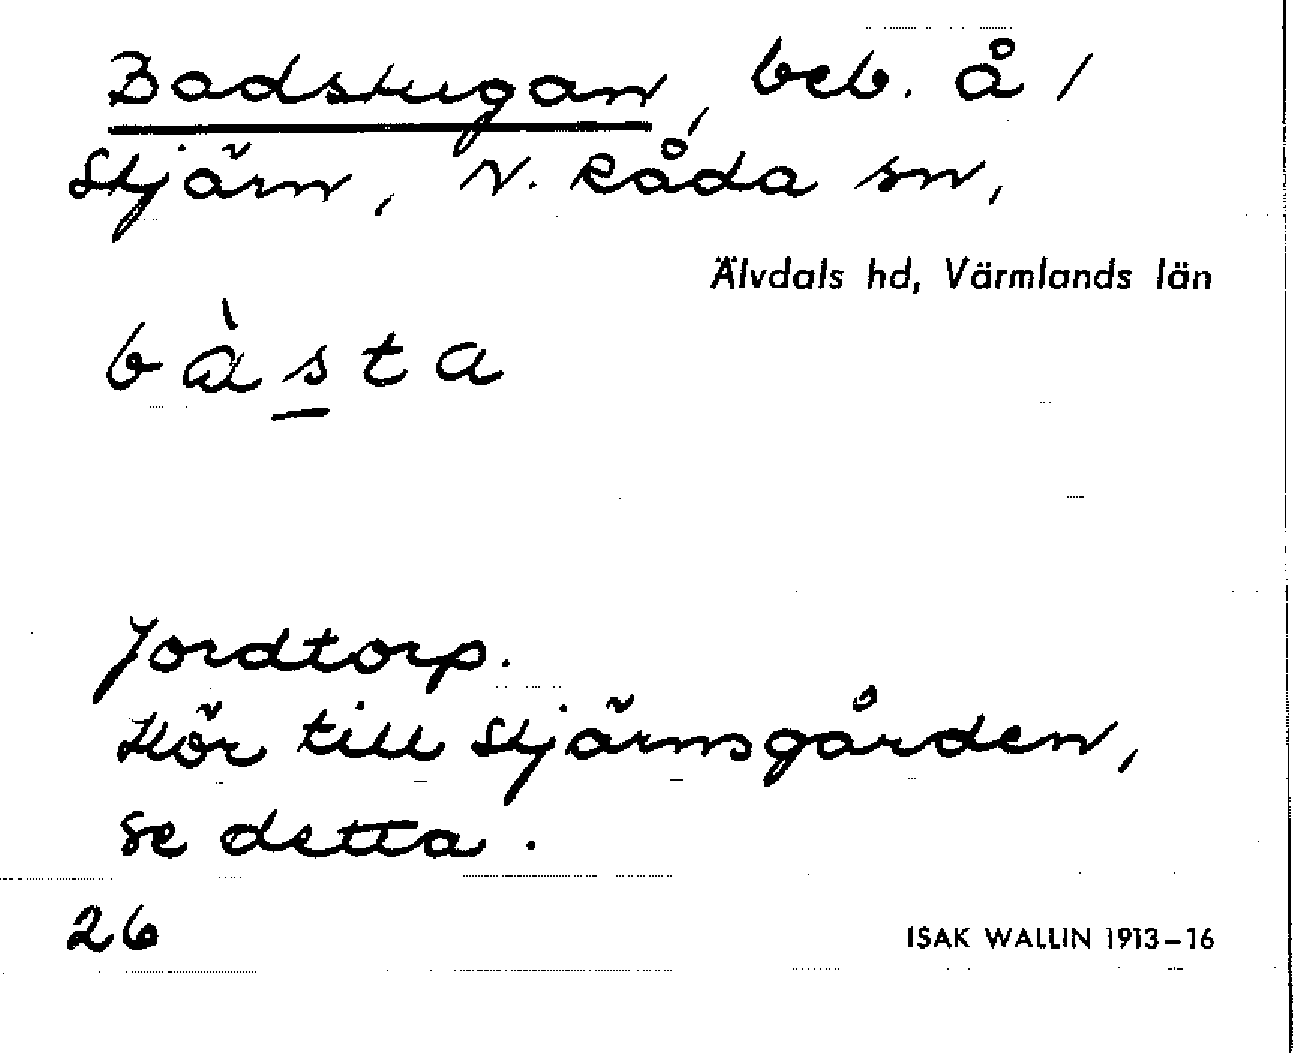 Badstugan, beb. å 1
Stjärn, N. Råda sn,
Älvdals hd, Värmlands län
bàsta
Jordtorp.
Hör till Stjärnsgården,
se detta.
26
ISAK WALLIN 1913–16